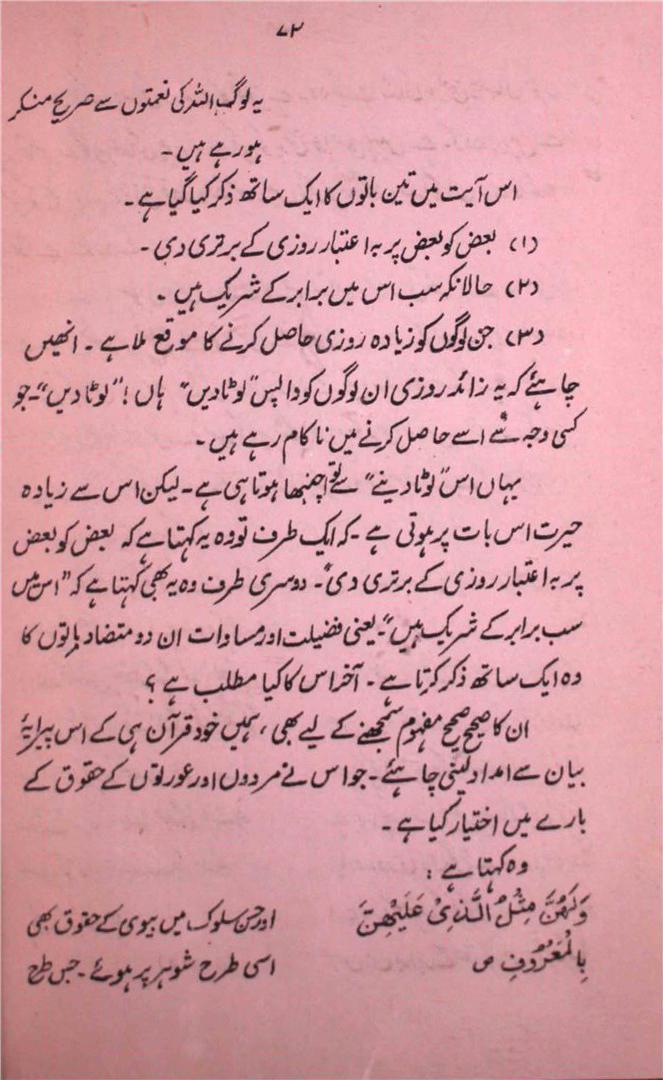 ۷۳
یہ لوگ اللہ کی نعمتوں سے صریح منکر
ہو رہے ہیں۔
اس آیت میں تین باتوں کا ایک ساتھ ذکر کیا گیا ہے۔
(۱) بعض کو بعض پر بہ اعتبار روزی کے برتری دی۔
(۲) حالانکہ سب اس میں برابر کے شریک ہیں۔
(۳) جن لوگوں کو زیادہ روزی حاصل کرنے کا موقع ملا ہے۔ انھیں
چاہئے کہ یہ زائد روزی ان لوگوں کو واپس "لوٹا دیں" ہاں! "لوٹا دیں"۔ جو
کسی وجہ سے اسے حاصل کرنے میں ناکام رہے ہیں۔
یہاں اس "لوٹا دینے" سے تو اچنبھا ہوتا ہی ہے۔ لیکن اس سے زیادہ
حیرت اس بات پر ہوتی ہے۔ کہ ایک طرف تو وہ یہ کہتا ہے کہ بعض کو بعض
پر بہ اعتبار روزی کے برتری دی"۔ دوسری طرف وہ یہ بھی کہتا ہے کہ "اس میں
سب برابر کے شریک ہیں"۔ یعنی فضیلت اور مساوات ان دو متضاد باتوں کا
وہ ایک ساتھ ذکر کرتا ہے۔ آخر اس کا کیا مطلب ہے؟
ان کا صحیح صحیح مفہوم سمجھنے کے لیے بھی، ہمیں خود قرآن ہی کے اس پیرایۂ
بیان سے امداد لینی چاہئے۔ جو اس نے مردوں اور عورتوں کے حقوق کے
بارے میں اختیار کیا ہے۔
وہ کہتا ہے:
وَلَهُنَّ مِثْلُ الَّذِیْ عَلَیْهِنَّ اور حسن سلوک میں بیوی کے حقوق بھی
بِالْمَعْرُوْفِ ص اسی طرح شوہر پر ہوئے۔ جس طرح